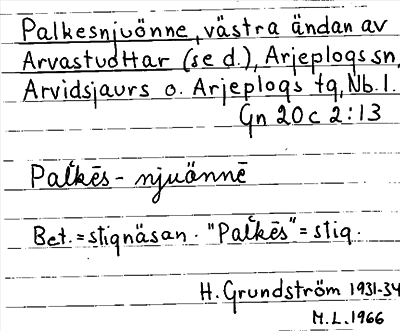 Palkesnjuönne, västra ändan av
Arvastudttar (se d.), Arjeplogs sn,
Arvidsjaurs o. Arjeplogs tg, Nb. l.
Gn 20 c 2:13
Palˈkēs - njuönnē
Bet. = stignäsan. "Palˈkēs" = stig.
H. Grundström 1931-34
M.L. 1966